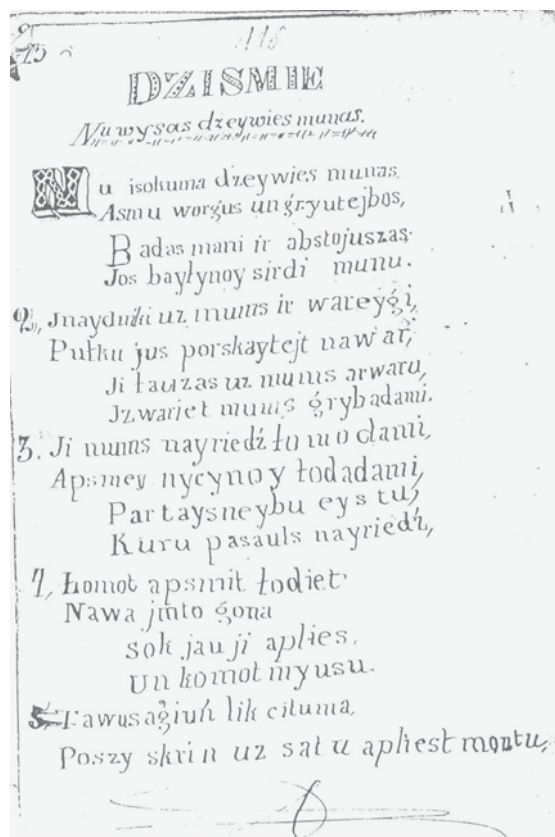 118
DZISMIE
Nu wysas dzeywies munas.
Nu isokuma dzeywies munas,
Asmu worgus un gryutejbos,
Badas mani ir abstojuszas.
Jos bayłynoy sirdi munu.
2,, Jnaydniki uz mums ir wareygi,
Pułku jus porskaytejt nawar,
Ji łauzas uz mums arwaru,
Jzwariet mums grybadami.
3. Ji mums nayriedź łomodami,
Apsmey nycynoy łodadami,
Partaysneybu eystu,
Kuru pasauls nayriedź,
4, Łomot apsmit łodiet
Nawa jmto gona
sok jau ji aplies,
Un komot myusu.
5, Tawusagiuń lik cituma,
Poszy skrin uz satu apliest montu,